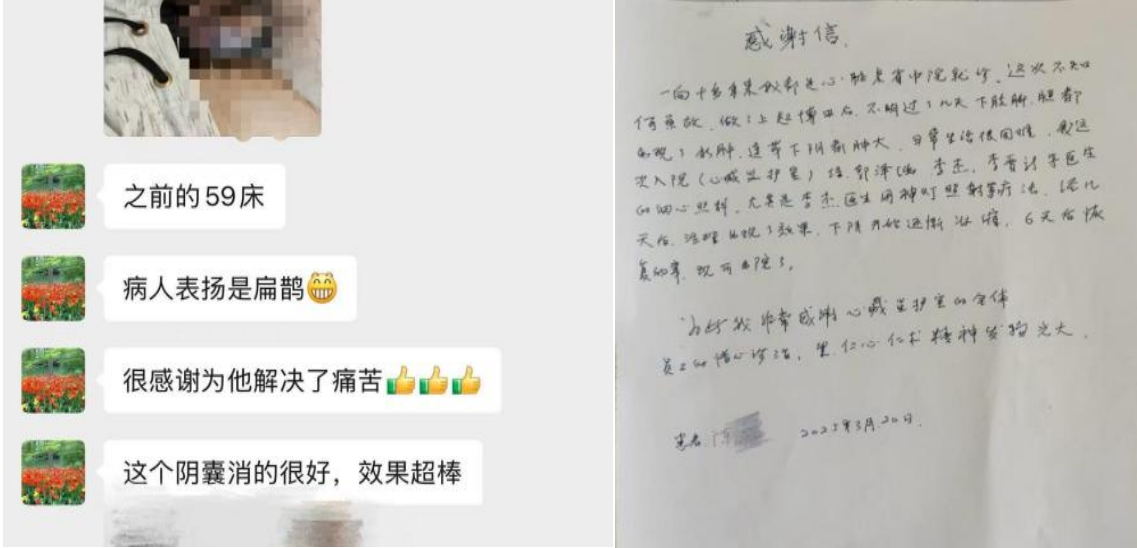 之前的59床
病人表扬是扁鹊😁
很感谢为他解决了痛苦👍👍👍
这个阴囊消的很好，效果超棒
感谢信
一向十多年来我都是心脏患省中院就诊，这次不知
何原故，做了上起博器后，不明过了几天下肢脚、腿都
出现了水肿，连带下阴都肿大，日常生活很困难，我这
次入院（心臓监护室）经郭泽 李杰、李晋 等医生
的细心照料，尤其是李杰医生用神灯照射等疗法，经几
天后，治理出现了效果，下阴开始逐渐 ，6天后恢
复 ，现可出院了。
为此我非常感谢心臓监护室的全体
员工的精心诊治，望仁心仁术精神发扬光大。
患者 陈 2025年3月20日.